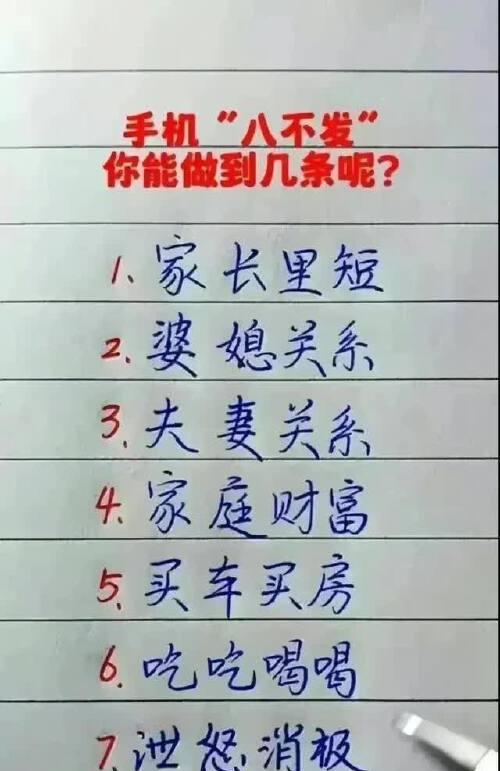 手机“八不发”
你能做到几条呢?
1. 家长里短
2. 婆媳关系
3. 夫妻关系
4. 家庭财富
5. 买车买房
6. 吃吃喝喝
7. 泄怒消极